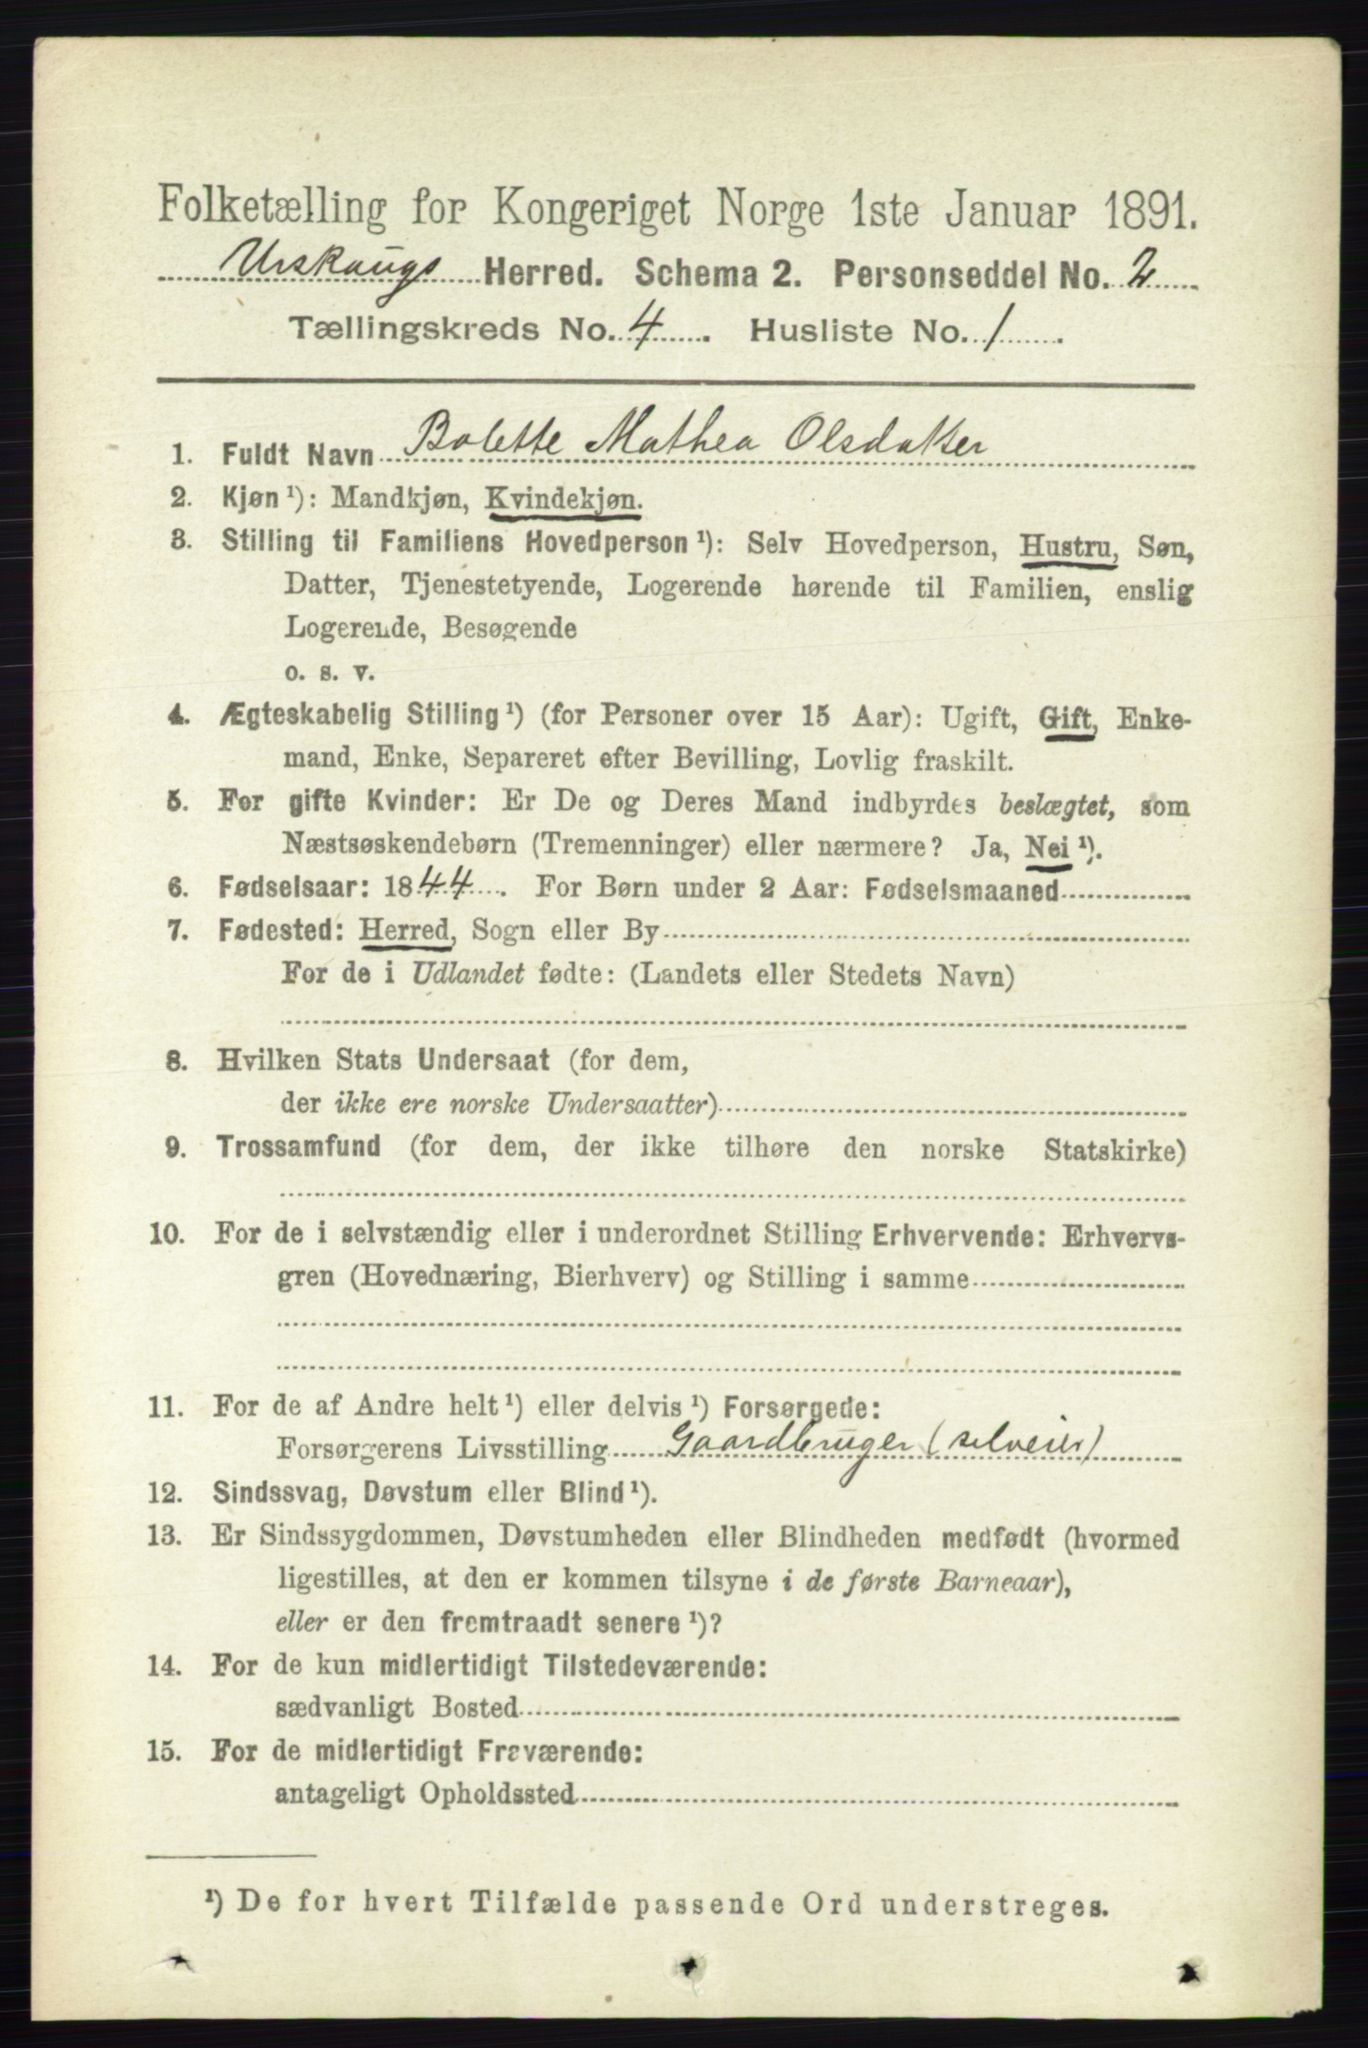 Folketælling for Kongeriget Norge 1ste Januar 1891.
Urskougs Herred. Schema 2. Personseddel No. 2
Tællingskreds No. 4. Husliste No. 1.
1. Fuldt Navn Bolette Mathea Olsdatter
2. Kjøn ¹): Mandkjøn, Kvindekjøn.
3. Stilling til Familiens Hovedperson ¹): Selv Hovedperson, Hustru, Søn,
Datter, Tjenestetyende, Logerende hørende til Familien, enslig
Logerende, Besøgende
o. s. v.
4. Ægteskabelig Stilling ¹) (for Personer over 15 Aar): Ugift, Gift, Enke-
mand, Enke, Separeret efter Bevilling, Lovlig fraskilt.
5. For gifte Kvinder: Er De og Deres Mand indbyrdes beslægtet, som
Næstsøskendebørn (Tremenninger) eller nærmere? Ja, Nei ¹).
6. Fødselsaar: 1844. For Børn under 2 Aar: Fødselsmaaned
7. Fødested: Herred, Sogn eller By
For de i Udlandet fødte: (Landets eller Stedets Navn)
8. Hvilken Stats Undersaat (for dem,
der ikke ere norske Undersaatter)
9. Trossamfund (for dem, der ikke tilhøre den norske Statskirke)
10. For de i selvstændig eller i underordnet Stilling Erhvervende: Erhvervs-
gren (Hovednæring, Bierhverv) og Stilling i samme
11. For de af Andre helt ¹) eller delvis ¹) Forsørgede:
Forsørgerens Livsstilling Gaardbruger (selveier)
12. Sindssvag, Døvstum eller Blind ¹).
13. Er Sindssygdommen, Døvstumheden eller Blindheden medfødt (hvormed
ligestilles, at den er kommen tilsyne i de første Barneaar),
eller er den fremtraadt senere ¹)?
14. For de kun midlertidigt Tilstedeværende:
sædvanligt Bosted
15. For de midlertidigt Fraværende:
antageligt Opholdssted
¹) De for hvert Tilfælde passende Ord understreges.